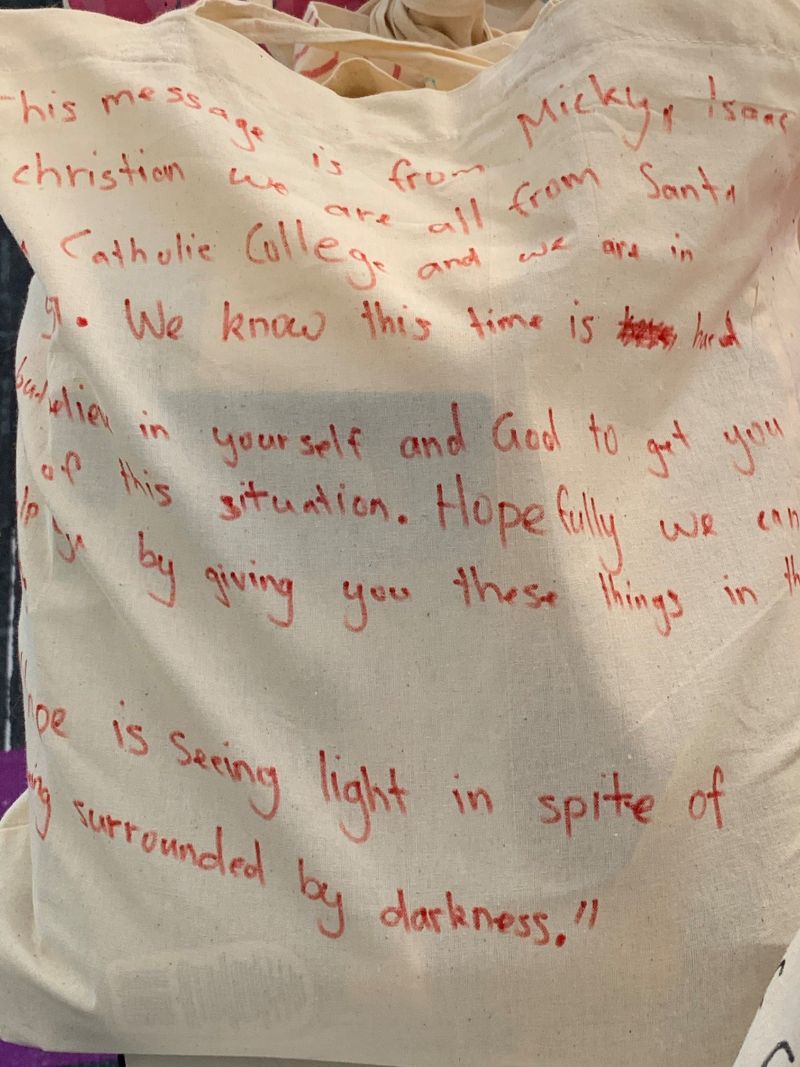 his message is from Micky, Isaac
christian we are all from Santa
Catholic College and we are in
9. We know this time is hard
but believe in yourself and God to get you
of this situation. Hopefully we can
by giving you these things in th
ope is seeing light in spite of
ing surrounded by darkness."